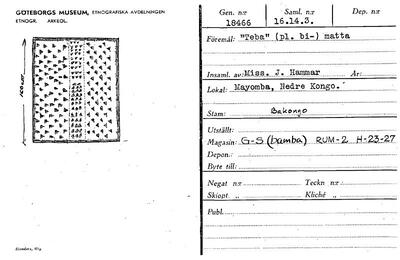 GÖTEBORGS MUSEUM, ETNOGRAFISKA AVDELNINGEN
ETNOGR. ARKEOL.
Gen. n:r Saml. n:r Dep. n:r
18466 16.14.3.
Föremål: "Teba" (pl. bi-) matta
Insaml. av: Miss. J. Hammar År:
Lokal: Mayomba, Nedre Kongo.
Stam: Bakongo
Utställt:
Magasin: G-S (bamba) RUM-2 H-23-27
Depon.:
Byte till:
Negat n:r Teckn n:r
Skiopt. „ Kliché „
Publ.